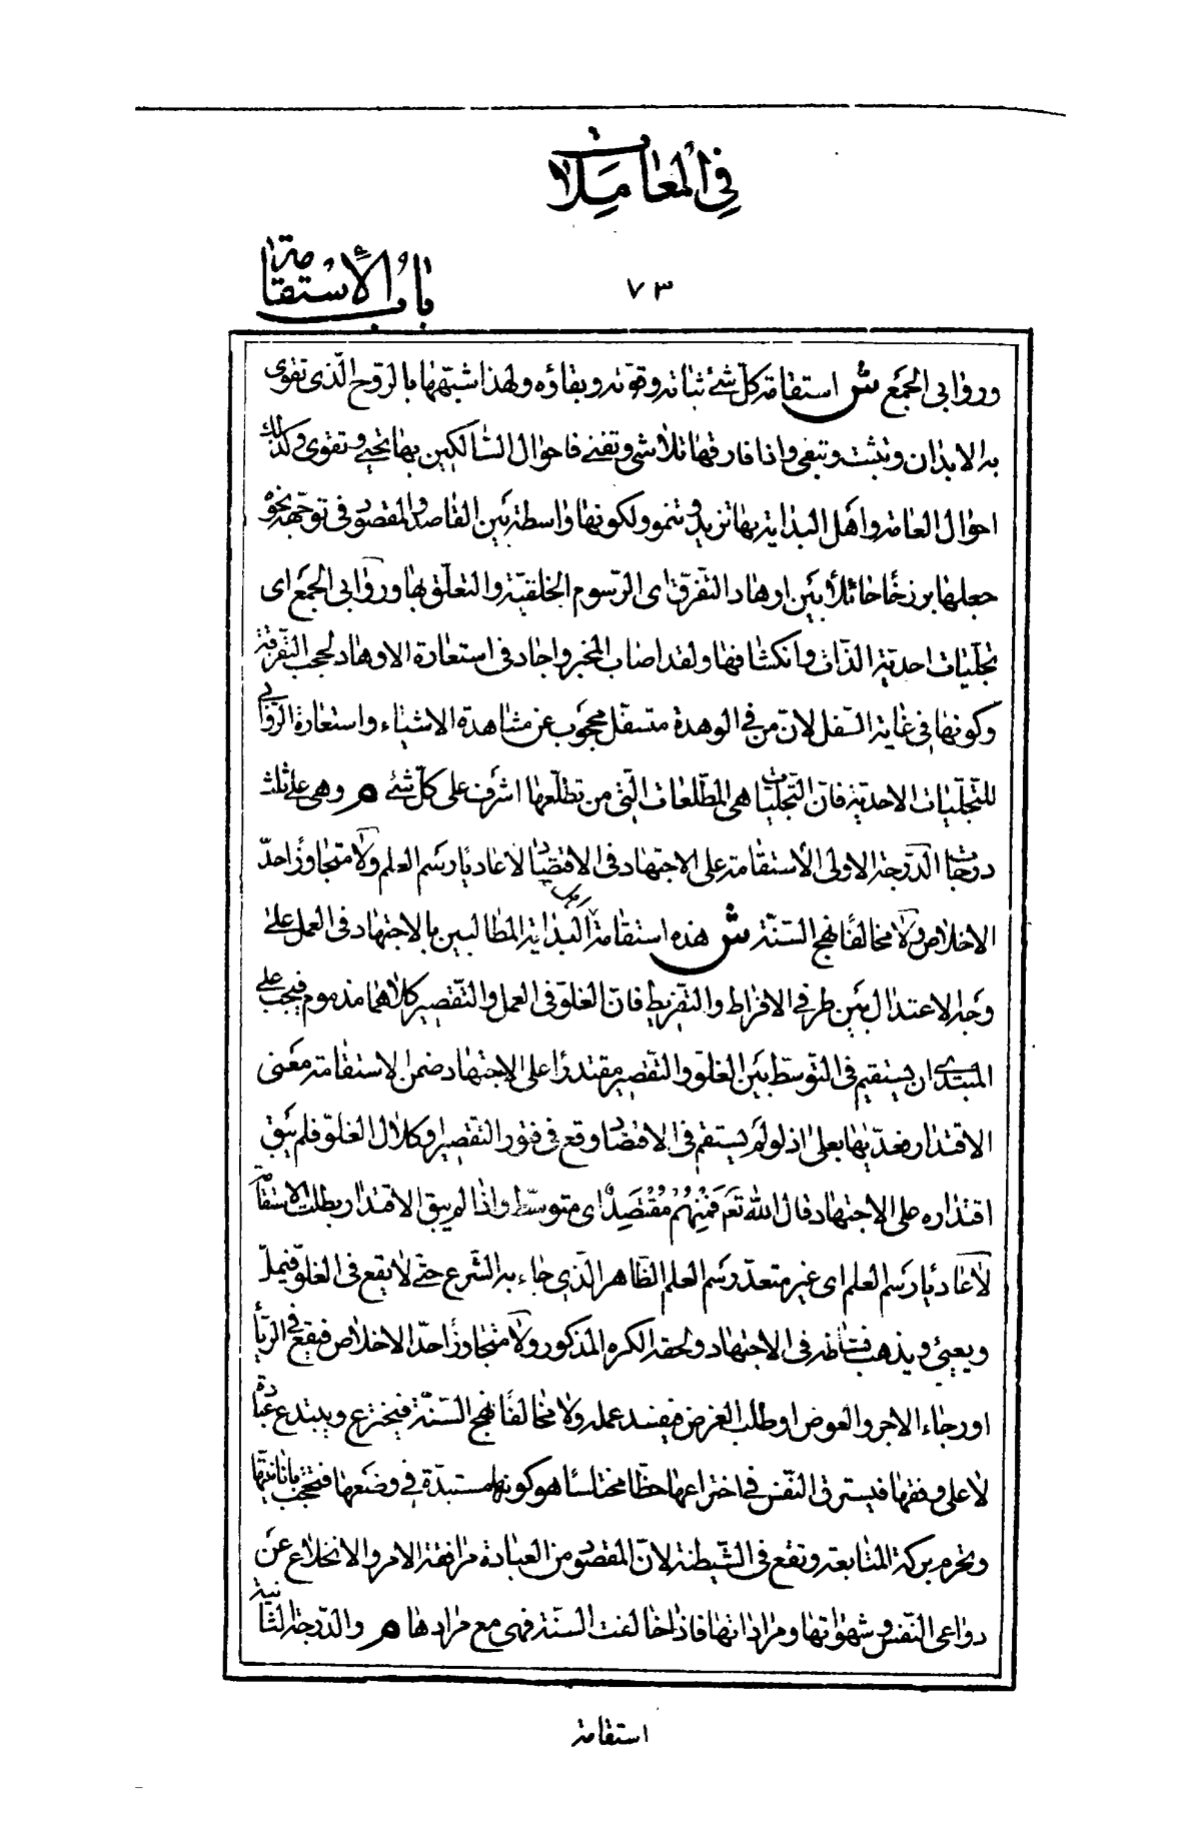 في المعاملات
باب الاستقامة
٧٣
وروابى الجمع ش استقامة كلّ شئ ثباته وقوته وبقاؤه ولهذا شبّهها بالروح الّذى تقوى
به الابدان وتثبت وتبقى واذا فارقها تلاشى وتفنى فاحوال السّالكين بها تحيى وتقوى وكذلك
احوال العامة واهل البداية بها تزيد وتنمو ولكونها واسطة بين القاصد والمقصود فى توجّهه نحوه
جعلها برزخًا حائلًا بين اوهاد التفرّق اى الرّسوم الخلقيّة والتعلّق بها وروابى الجمع اى
تجلّيات احديّة الذّات وانكشافها ولقد اصاب المخبر واجاد فى استعارة الاوهاد لحجب التفرقة
وكونها فى غاية السّفل لانّ من فى الوهدة متسفّل محجوب عن مشاهدة الاشياء واستعارة الرّوابى
للتجلّيات الاحديّة فانّ التجلّيات هى المطّلعات الّتى من تطلّعها اشرف على كلّ شئ م وهى على ثلث
درجات الدّرجة الاولى الاستقامة على الاجتهاد فى الاقتصاد لا عاديًا رسم العلم ولا متجاوزًا حدّ
الاخلاص ولا مخالفًا نهج السّنّة ش هذه استقامة اهل البداية المطالبين بالاجتهاد فى العمل على
وجه الاعتدال بين طرفى الافراط والتفريط فانّ الغلوّ فى العمل والتّقصير كلاهما مذموم فيجب على
المبتدى ان يستقيم فى التوسّط بين الغلوّ والتّقصير مقتدرًا على الاجتهاد ضمن الاستقامة معنى
الاقتدار فعدّيها بعلى اذ لو لم يستقم فى الاقتصاد وقع فى فتور التقصير او كلال الغلوّ فلم يبق
اقتداره على الاجتهاد قال الله تع فَمِنْهُمْ مُقْتَصِدٌ اى متوسّط واذا لم يبق الاقتدار بطلت الاستقامة
لا عاديًا رسم العلم اى غير متعدّ رسم العلم الظّاهر الّذى جاء به الشّرع حتّى لا يقع فى الغلوّ فيملّ
ويعيى ويذهب نشاطه فى الاجتهاد ولحقه الكره المذكور ولا متجاوزًا حدّ الاخلاص فيقع فى الريّا
او رجاء الاجر والعوض او طلب الغرض فيفسد عمله ولا مخالفًا نهج السّنّة فيخترع ويبتدع عبادة
لا على وفقها فيسترق النّفس فى اختراعها حظّا مختلسا هو كونها مستبدّة فى وضعها فتحتجب بانانيّتها
وتحرم بركة المتابعة وتقع فى الشّيطنة لانّ المقصود من العبادة مرافقة الامر والانخلاع عن
دواعى النّفس وشهواتها ومراداتها فاذا خالفت السنّة فهى مع مرادها م والدّرجة الثّانية
استقامة